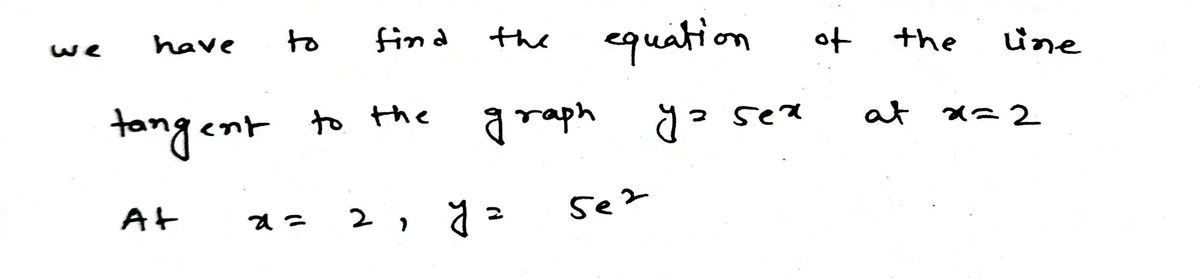 we have to find the equation of the line
tangent to the graph y = 5ex at x = 2
At x = 2, y = 5e²